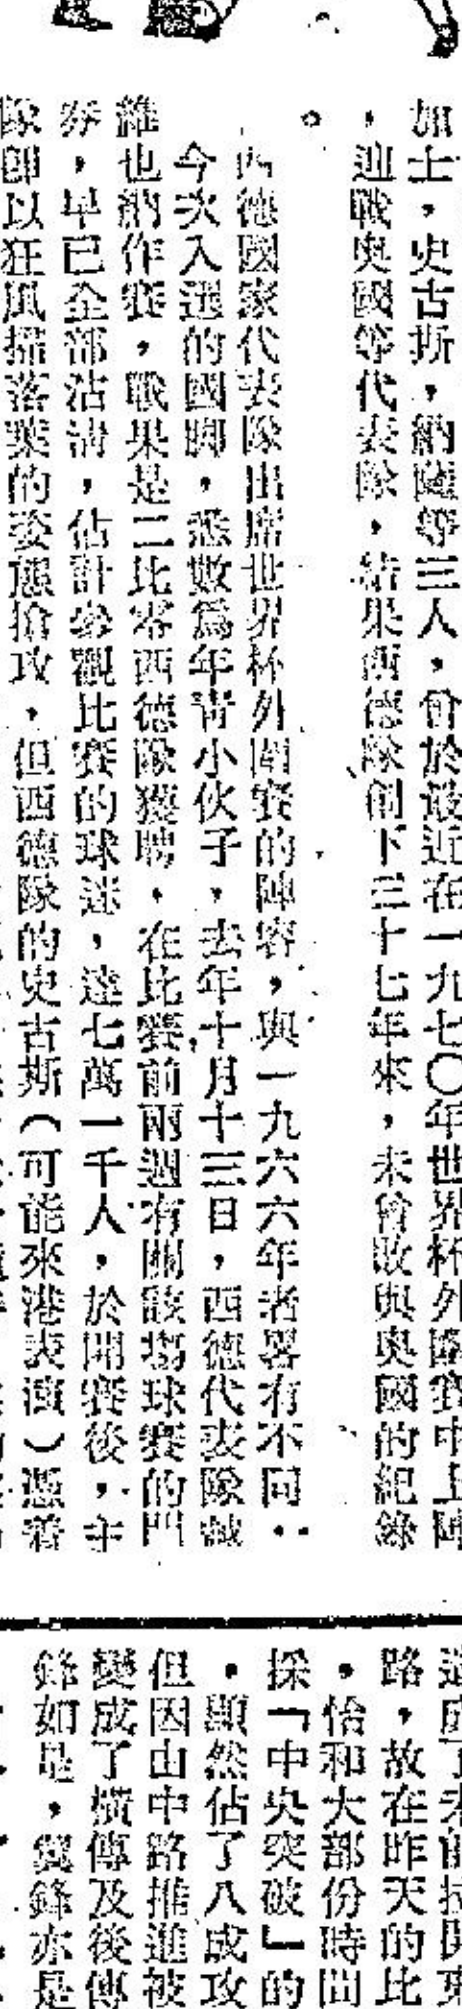 加士，史古斯，納薩等三人，曾於最近在一九七〇年世界杯外圍賽中上陣
，迎戰奧國等代表隊，結果西德隊創下三十七年來，未曾敗與奧國的紀錄
。
西德國家代表隊出席世界杯外圍賽的陣容，與一九六六年者畧有不同：
今次入選的國脚，悉數爲年青小伙子，去年十月十三日，西德代表隊
維也納作賽，戰果是二比零西德隊獲勝，在比賽前兩週有關該塲球賽的門
券，早已全部沽淸，估計參觀比賽的球迷，達七萬一千人，於開賽後，主
隊卽以狂風掃落葉的姿態搶攻，但西德隊的史古斯（可能來港表演）憑着
路，故在昨天的比
，恰和大部份時間
採「中央突破」的
，顯然佔了八成攻
但因由中路推進被
變成了橫傳及後傳
鋒如是，翼鋒亦是